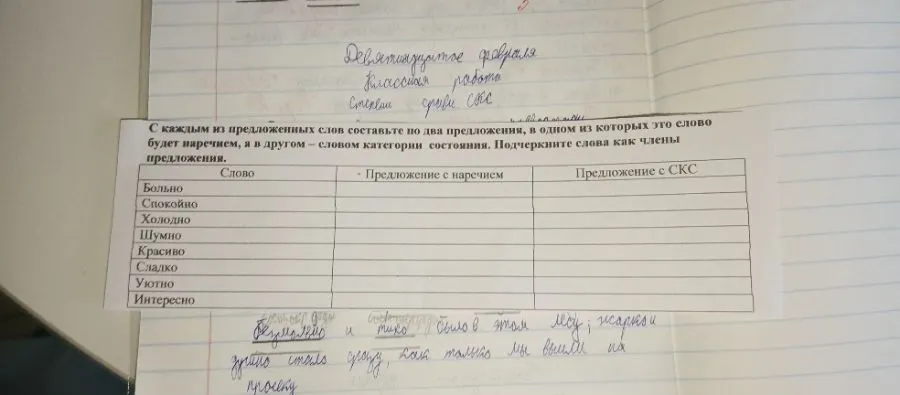 Девятнадцатое февраля
Классная работа
Степени срав. СКС
С каждым из предложенных слов составьте по два предложения, в одном из которых это слово
будет наречием, а в другом – словом категории состояния. Подчеркните слова как члены
предложения.
Слово Предложение с наречием Предложение с СКС
Больно
Спокойно
Холодно
Шумно
Красиво
Сладко
Уютно
Интересно
Безмолвно и тихо было в этом лесу; жарко и
душно стало сразу, как только мы вышли на
просеку